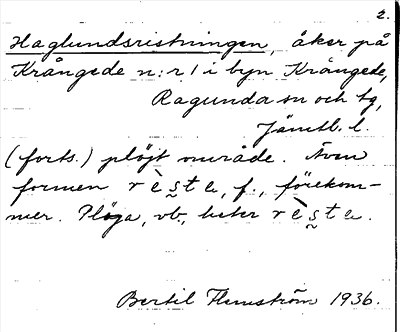 2.
Haglundsristningen, åker på
Krångede n:r 1 i byn Krångede,
Ragunda sn och tg,
Jämtl. l.
(forts.) plöjt område. Även
formen rèste, f., förekom-
mer. Plöga, vb, heter rèste.
Bertil Flemström 1936.